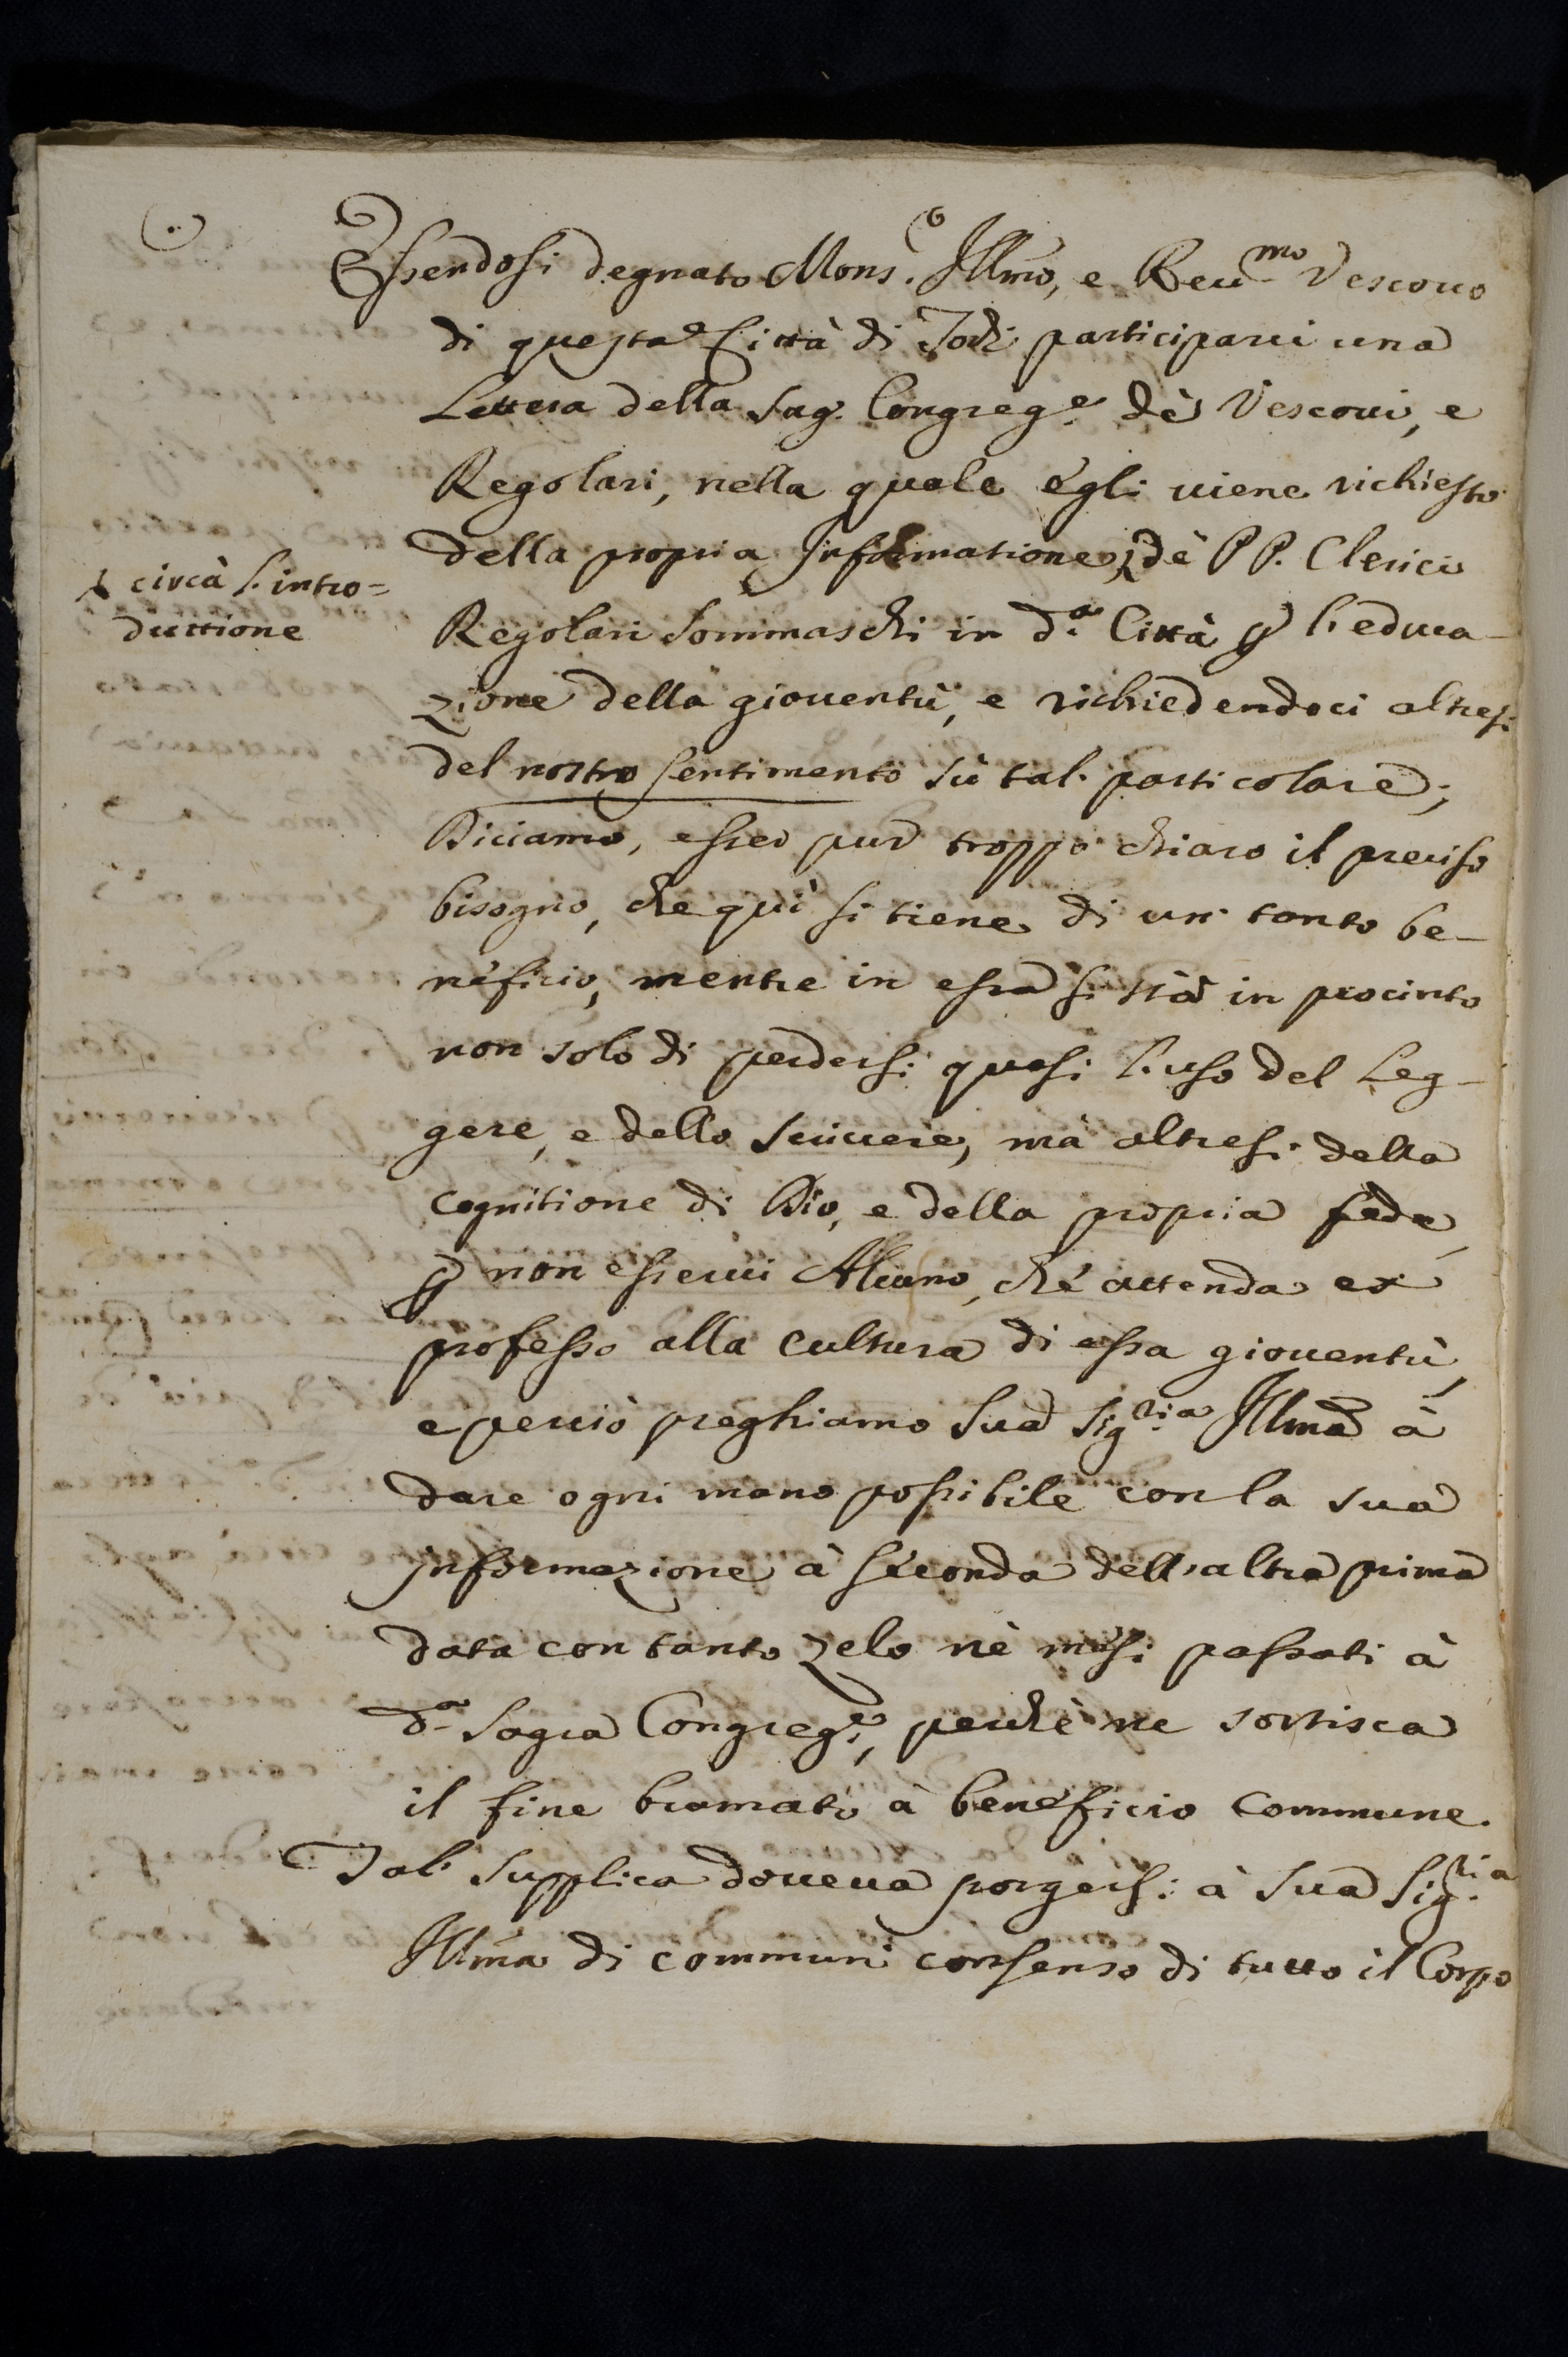 Essendosi degnato Mons.r Illmo, e Reu.mo Vescouo
di questa Città di Todi participarci una
Lettera della Sag. Congreg.e dè Vescoui, e
Regolari, nella quale egli uiene richiesto
della propria Informatione, dè PP. Clerici
circà l'intro=
duttione
Regolari Sommaschi in d.a Città p l'educa-
zione della giouentù, e richiedendoci altresi
del nostro sentimento sù tal particolare;
Diciamo, esser pur troppo chiaro il preciso
bisogno, che quì si tiene di un tanto be-
neficio, mentre in essa si stà in procinto
non solo di perdersi quasi l'uso del Leg-
gere, e dello scriuere, mà altresi della
cognitione di Dio, e della propria fede,
p non esserui Alcuno, che attenda ex
professo alla cultura di essa giouentù,
e perciò preghiamo Sua Sig.ria Illma à
dare ogni mano possibile con la sua
informazione à seconda dell'altra prima
data con tanto zelo nè mesi passati à
d.a Sagra Congreg.e, perchè ne sortisca
il fine bramato à beneficio commune.
Tal supplica doueua porgersi à Sua Sig.ria
Illma di commun consenso di tutto il Corpo